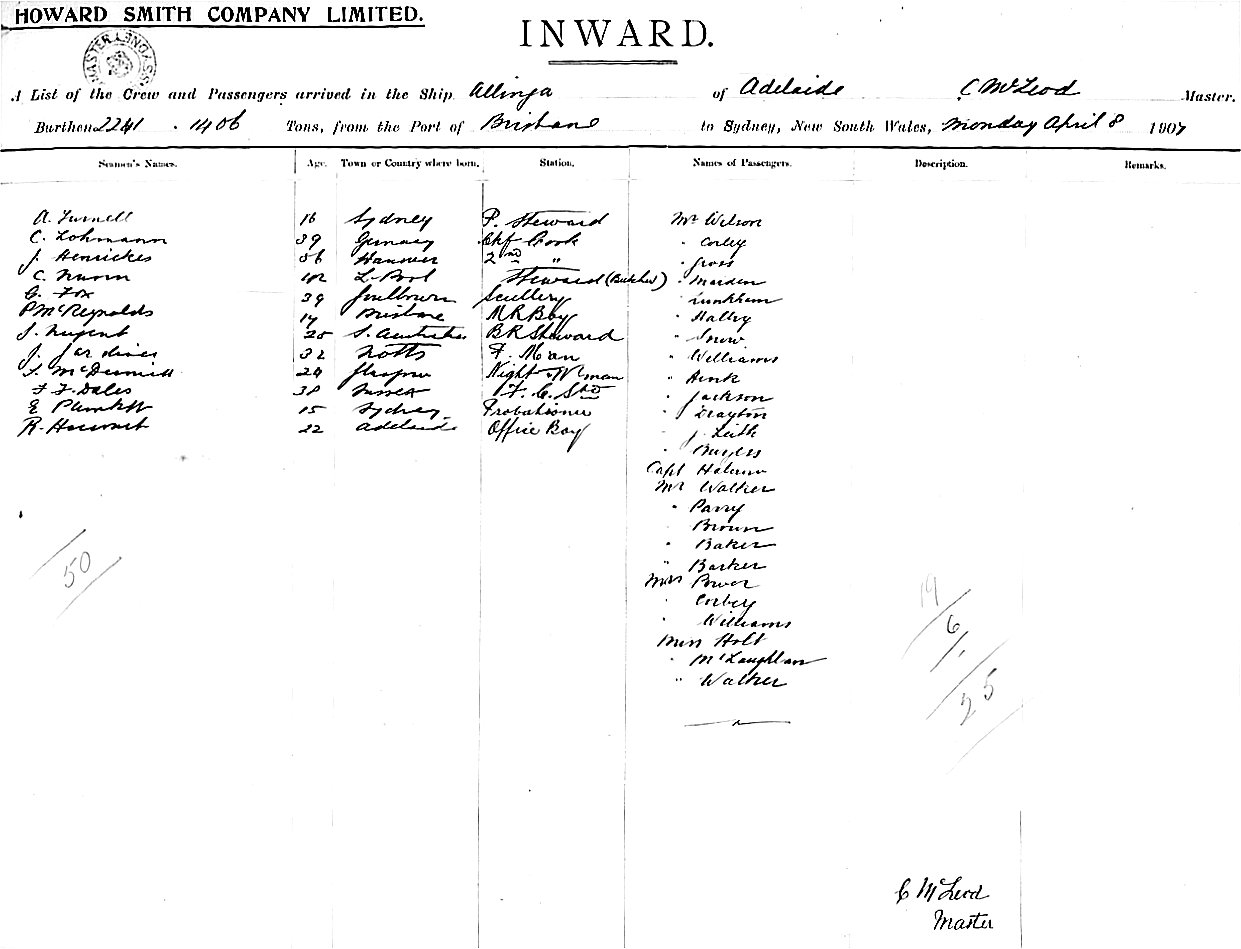 HOWARD SMITH COMPANY LIMITED.
INWARD.
A List of the Crew and Passengers arrived in the Ship Allinga of Adelaide C McLeod Master.
Burthen 2241 . 1406 Tons, from the Port of Brisbane to Sydney, New South Wales, Monday April 8 1907
Seamen's Names. Age. Town or Country where born. Station. Names of Passengers. Description. Remarks.
A. Furnell 16 Sydney P. Steward Mr Wilson
C. Lohmann 39 Germany Chf Cook " Corley
J. Henrickes 56 Hanover 2nd " "
C. L. Pool Steward (Butcher) " Marden
G. Fox 39 Goulbourn Scullery " Lunkham
P McReynolds 17 Brisbane M R Boy " Halley
J. Nugent 25 S. Australia B R Steward " Snow
J. Jardines 32 Notts F. Man " Williams
24 Glasgow Night W man "
F. F. Dales 38 Sussex F. C. Std " Jackson
E Plunkett 15 Sydney Probationer " Drayton
R. 22 Adelaide Office Boy " J. Leith
" Bayless
Capt
Mr Walker
" Parry
" Brown
" Baker
" Barker
Mrs Power
" Corbey
" Williams
Miss Holt
" McLaughlan
" Walker
50
19
6
25
C McLeod
Master